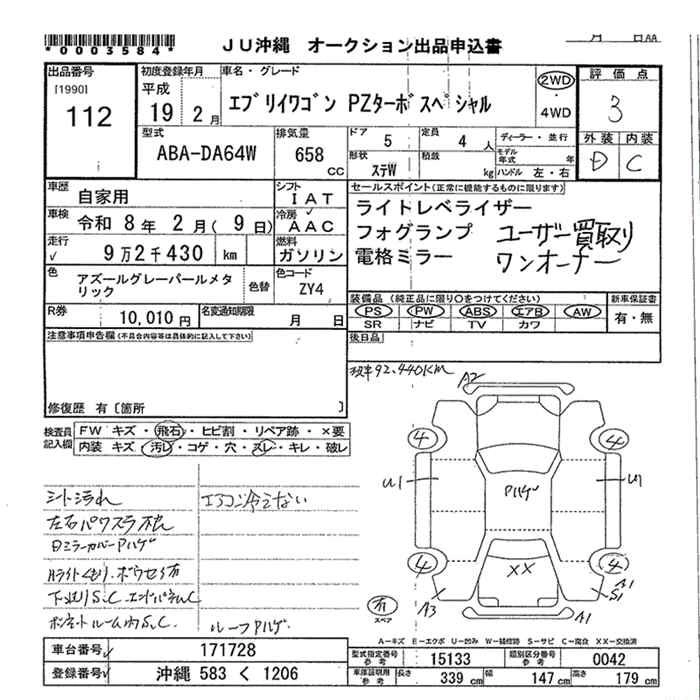 *0003584*
JU沖縄 オークション出品申込書
月 日AA
出品番号
[1990]
112
初度登録年月
平成
19 2月
車名・グレード
エブリイワゴン PZターボスペシャル
2WD
・
4WD
評価点
3
外装 内装
D C
型式
ABA-DA64W
排気量
658 cc
ドア 5
定員 4 人
ディーラー・並行
モデル年式 年
形状 ステW
積載 kg
ハンドル 左・右
車歴 自家用
シフト IAT
車検 令和 8年 2月( 9日)
冷房 AAC
走行 9万2千430 km
燃料 ガソリン
色 アズールグレーパールメタリック
色替
色コード ZY4
R券 10,010円
名変通知期限 月 日
セールスポイント(正常に機能するものに限ります)
ライトレベライザー
フォグランプ
電格ミラー
ユーザー買取り
ワンオーナー
装備品 (純正品に限り〇をつけてください)
新車保証書
PS PW ABS エアB AW
SR ナビ TV カワ
有・無
後日品
注意事項申告欄(不具合内容等は具体的に記入して下さい)
修復歴 有〔箇所 〕
検査員記入欄
FW キズ・飛石・ヒビ割・リペア跡・×要
内装 キズ・汚レ・コゲ・穴・スレ・キレ・破レ
92,440KM
シート汚れ
エアコン冷えない
ルーフPハゲ
A2
4 4
U1 U1
Pハゲ
4 4
XX
A3
A1
S1
A1
有
スペア
A―キズ E―エクボ U―凹み W―補修跡 S―サビ C―腐食 XX―交換済
車台番号 171728
登録番号 沖縄 583 く 1206
型式指定番号 参考 15133
類別区分番号 参考 0042
車庫証明用 参考 長さ 339 cm 幅 147 cm 高さ 179 cm